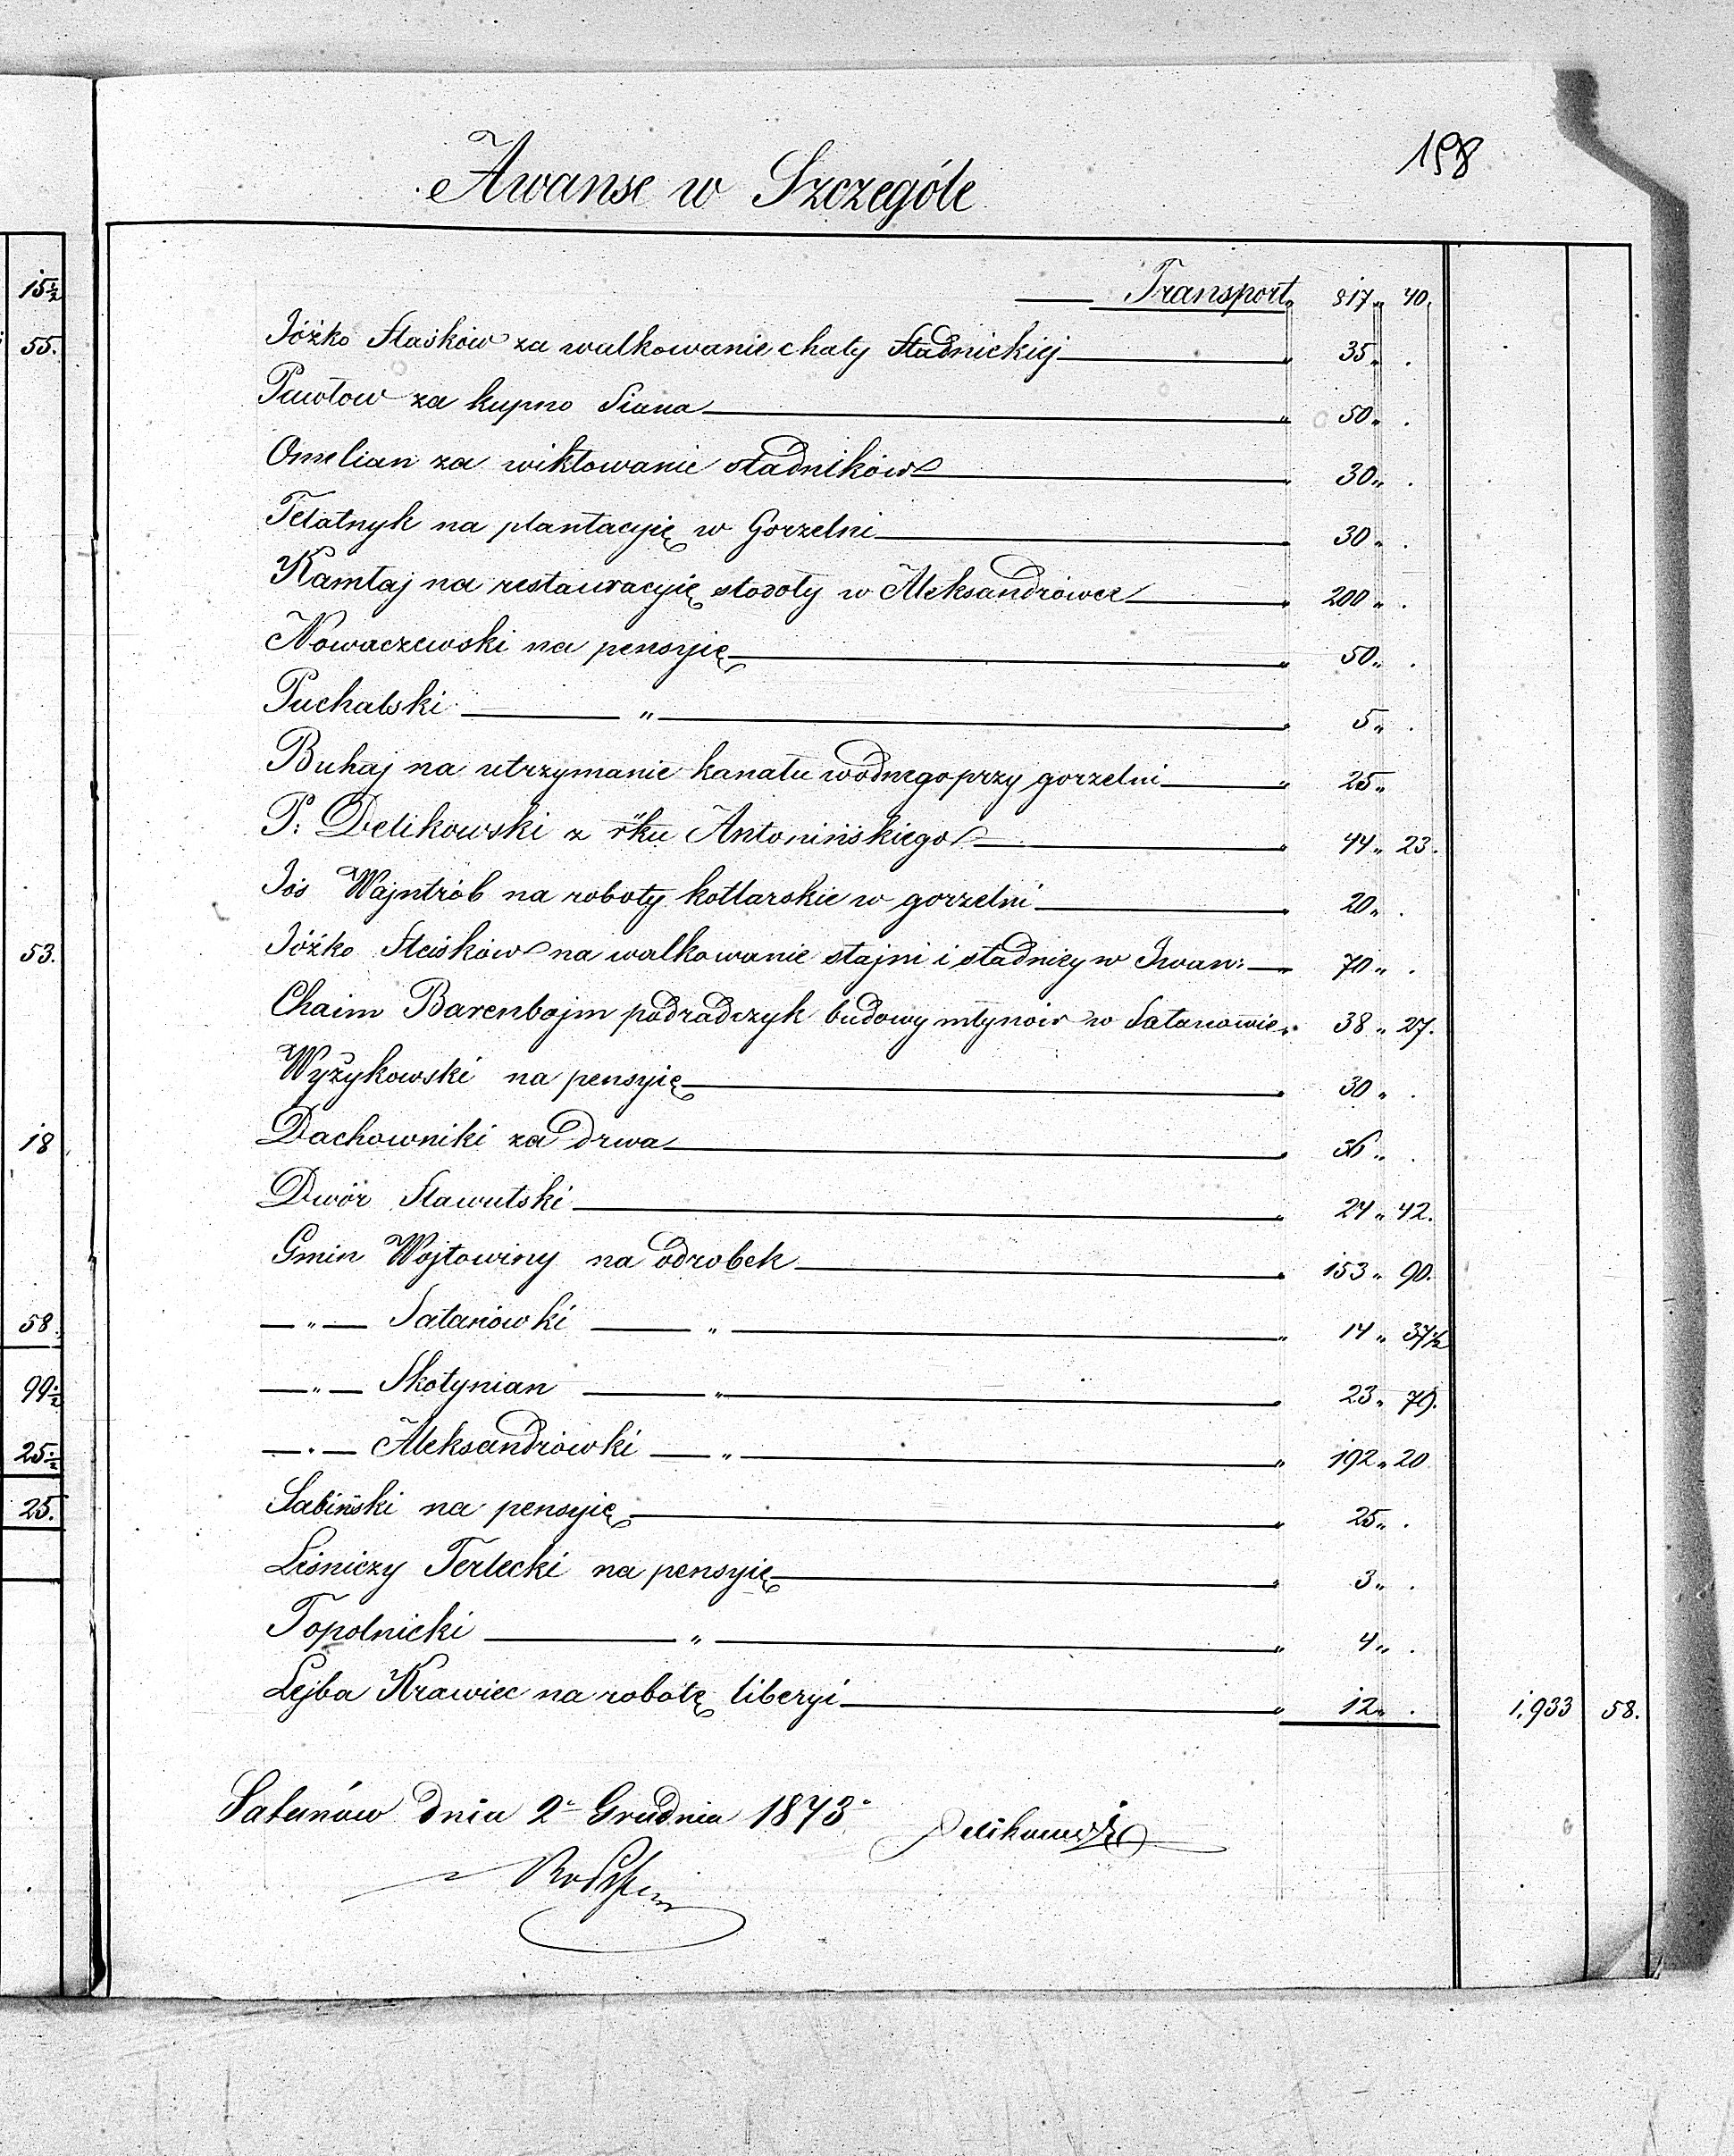 198
Awanse w Szczególe
Transport " 817 " 40.
Jóśko Staśków za walkowanie chaty Stadnickiej " 35 " .
Pawłow za kupno Siana " 50 " .
Omelian za wiktowanie stadników " 30 " .
Telatnyk na plantacyię w Gorzelni " 30 " .
Kamłaj na restauracyię stodoły w Aleksandrówce " 200 " .
Nowaczewski na pensyię " 50 " .
Puchalski " " 5 " .
Buhaj na utrzymanie kanału wodnego przy gorzelni " 25 "
P: Delikowski z rku Antonińskiego " 44 " 23.
Joś Wajntrób na roboty kotlarskie w gorzelni " 20 " .
Jóśko Steśków na walkowanie stajni i stadnicy w Iwan: " 70 " .
Chaim Barenbojm podradczyk budowy młynów w Satanowie " 38 " 27.
Wyżykowski na pensyię " 30 " .
Dachowniki za drwa " 56 " .
Dwór Sławutski " 24 " 42.
Gmin Wojtowiny na odrobek " 153 " 90.
" Satanówki " " 14 " 37½
" Skotynian " " 23 " 79.
" Aleksandrówki " " 192 " 20
Sabiński na pensyię " 25 " .
Leśniczy Terlecki na pensyię " 3 " .
Topolnicki " " 4 " .
Lejba Krawiec na robotę liberyi " 12 " . 1,933 58.
Satanów dnia 2 Grudnia 1873
Delikowski
15½
55.
53.
18
58.
99½
25½
25.